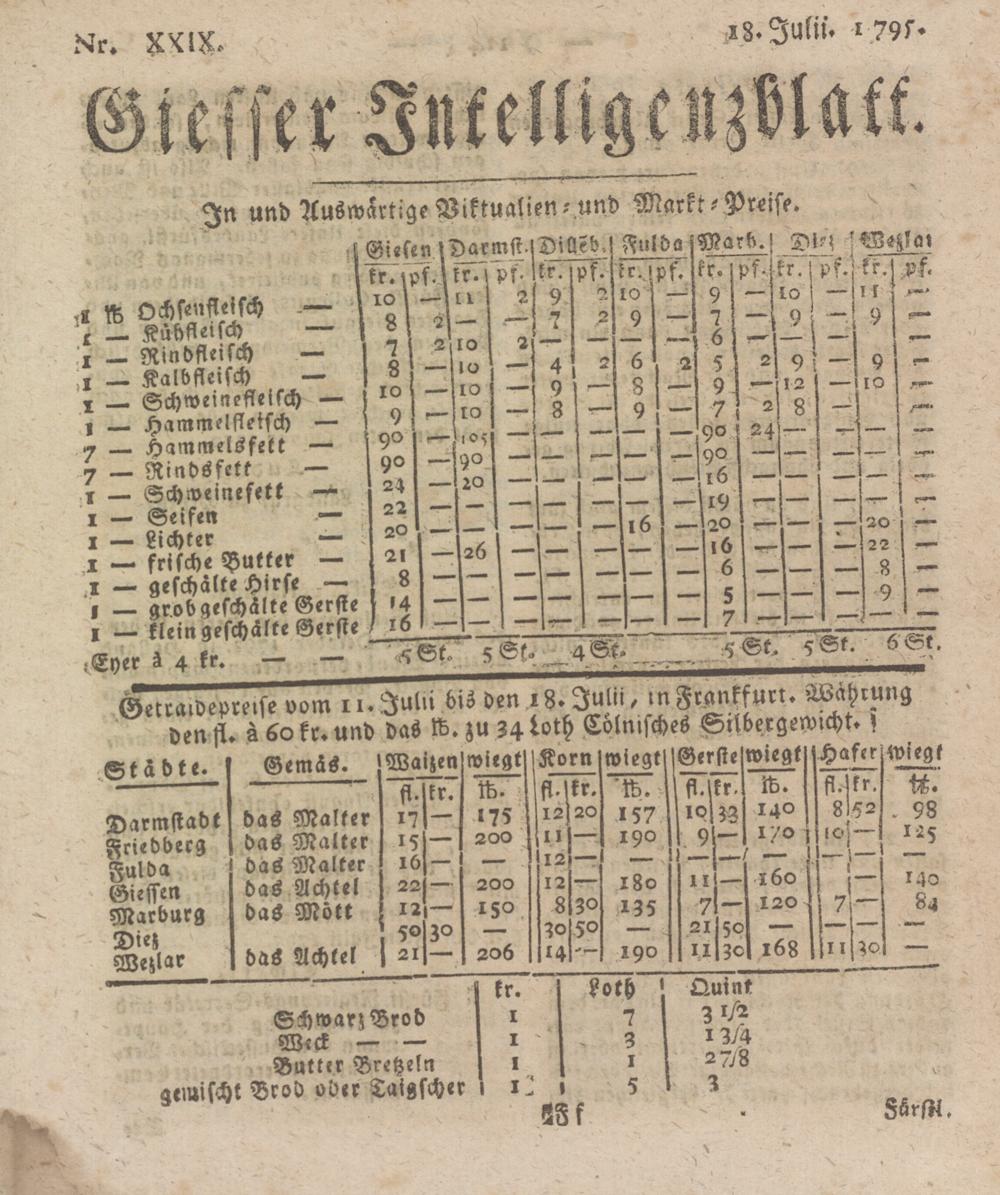 Nr. XXIX. 18. Julii. 1795.
Giesser Intelligenzblatt.
In und Auswärtige Viktualien- und Markt-Preise.
Giesen Darmst. Dilleb. Fulda Marb. Diez Wezlar
kr. pf. kr. pf. kr. pf. kr. pf. kr. pf. kr. pf. kr. pf.
1 ℔ Ochsenfleisch — 10 — 11 2 9 2 10 — 9 — 10 — 11 —
1 — Kühfleisch — 8 2 — — 7 2 9 — 7 — 9 — 9 —
1 — Rindfleisch — 7 2 10 2 — — — — 6 — — — — —
1 — Kalbfleisch — 8 — 10 — 4 2 6 2 5 2 9 — 9 —
1 — Schweinefleisch — 10 — 10 — 9 — 8 — 9 — 12 — 10 —
1 — Hammelfleisch — 9 — 10 — 8 — 9 — 7 2 8 — —
7 — Hammelsfett — 90 — 105 — — — — — 90 24 — — — —
7 — Rindsfett — 90 — 90 — — — — — 90 — — — — —
1 — Schweinefett — 24 — 20 — — — — — 16 — — — — —
1 — Seifen — 22 — — — — — — — 19 — — — — —
1 — Lichter — 20 — — — — — 16 — 20 — — — 20 —
1 — frische Butter — 21 — 26 — — — — — 16 — — — 22 —
1 — geschälte Hirse — 8 — — — — — — — 6 — — — 8 —
1 — grob geschälte Gerste 14 — — — — — — — 5 — — — 9 —
1 — klein geschälte Gerste 16 — — — — — — — 7 — — — — —
Eyer à 4 kr. — — 5 St. 5 St. 4 St. 5 St. 5 St. 6 St.
Getraidepreise vom 11. Julii bis den 18. Julii, in Frankfurt. Währung
den fl. à 60 kr. und das ℔. zu 34 Loth Cölnisches Silbergewicht.
Städte. Gemäs. Waizen wiegt Korn wiegt Gerste wiegt Hafer wiegt
fl. kr. ℔. fl. kr. ℔. fl. kr. ℔. fl. kr. ℔.
Darmstadt das Malter 17 — 175 12 20 157 10 33 140 8 52 98
Friedberg das Malter 15 — 200 11 — 190 9 — 170 10 — 125
Fulda das Malter 16 — — 12 — — — — — — — —
Giessen das Achtel 22 — 200 12 — 180 11 — 160 — 140
Marburg das Mött 12 — 150 8 30 135 7 — 120 7 — 84
Diez 50 30 — 30 50 — 21 50 — — — —
Wezlar das Achtel 21 — 206 14 — 190 11 30 168 11 30 —
kr. Loth Quint
Schwarz Brod 1 7 3 1/2
Weck — — 1 3 1 3/4
Butter Bretzeln 1 1 2 7/8
gemischt Brod oder Taigscher 1 5 3
Ff Fürstl.